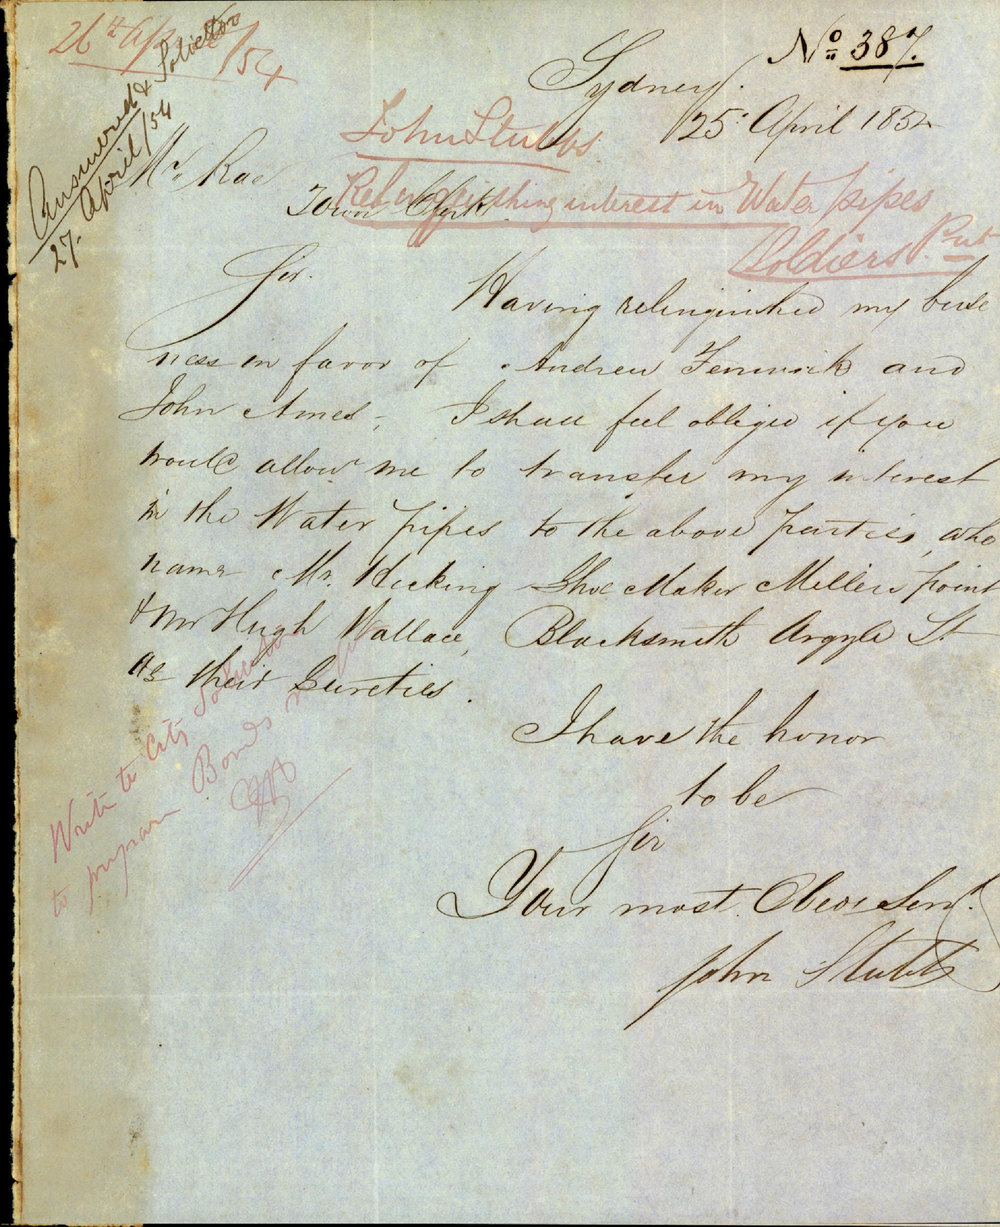 26th April /54
Answered & Solicitor
27. April /54
No 387.
Sydney.
25 April 1854
John Stubbs
Relinquishing interest in Water pipes
Soldiers Pnt
Mr Rae
Town Clerk
Sir.
Having relinquished my busi
ness in favor of Andrew Fenwick and
John Ames, I shall feel obliged if you
would allow me to transfer my interest
in the Water pipes to the above parties, who
name Mr. Hicking Shoe Maker Millers point
& Mr Hugh Wallace, Blacksmith Argyle St
as their Sureties.
Write to City Solicitor
to prepare Bonds
I have the honor
to be
Sir
Your most Obed Servt
John Stubbs